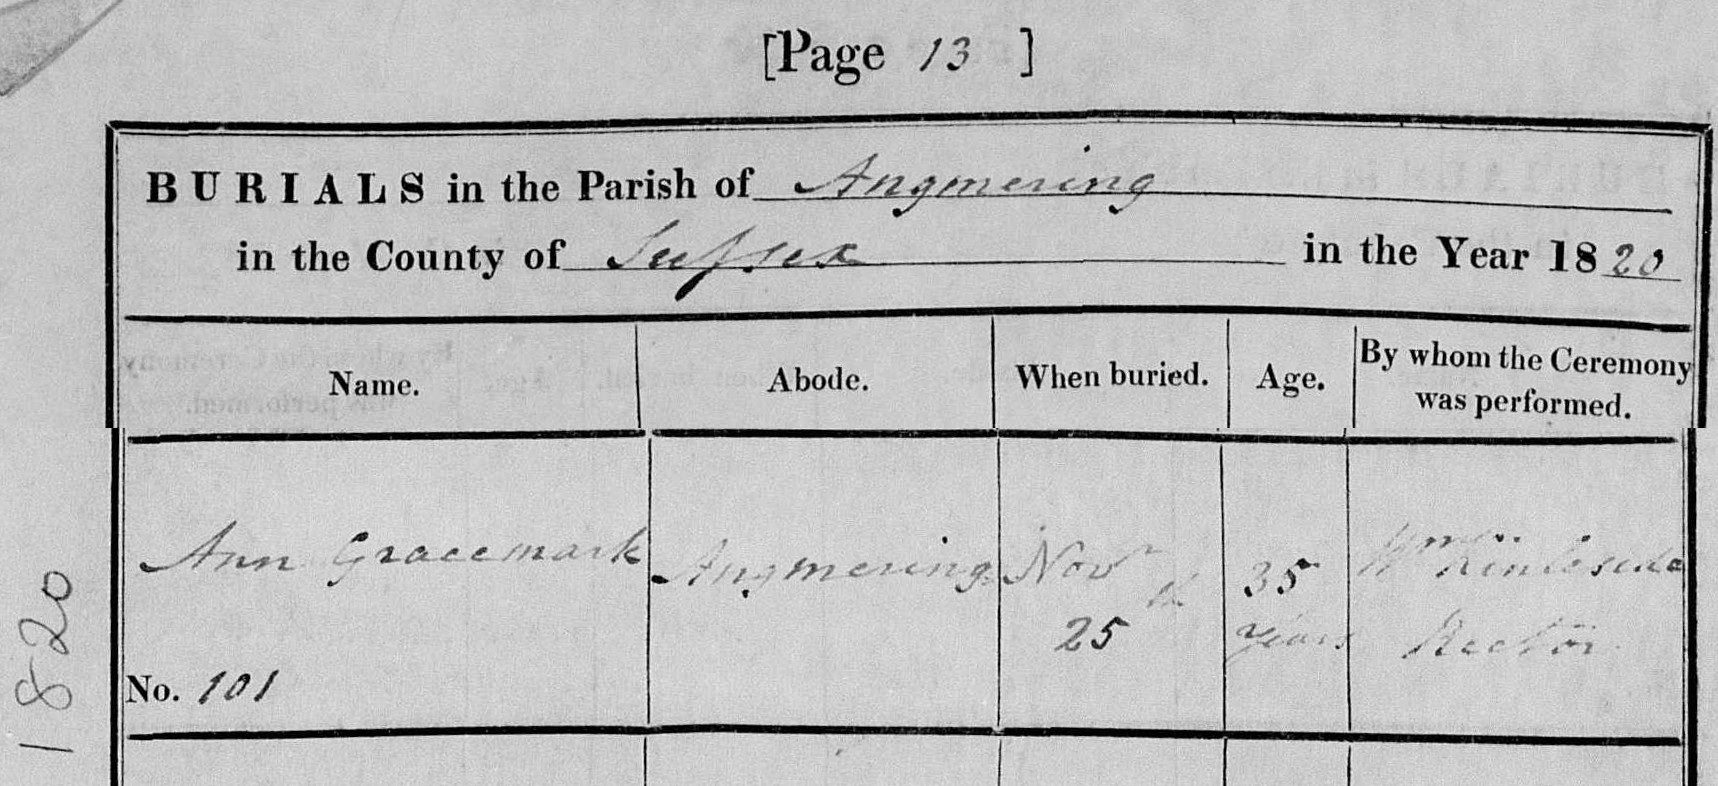 [Page 13 ]
BURIALS in the Parish of Angmering
in the County of Sussex in the Year 1820
Name. Abode. When buried. Age. By whom the Ceremony was performed.
Ann Gracemark Angmering Nov 25th 35 years Wm Kinleside Rector
No. 101
1820